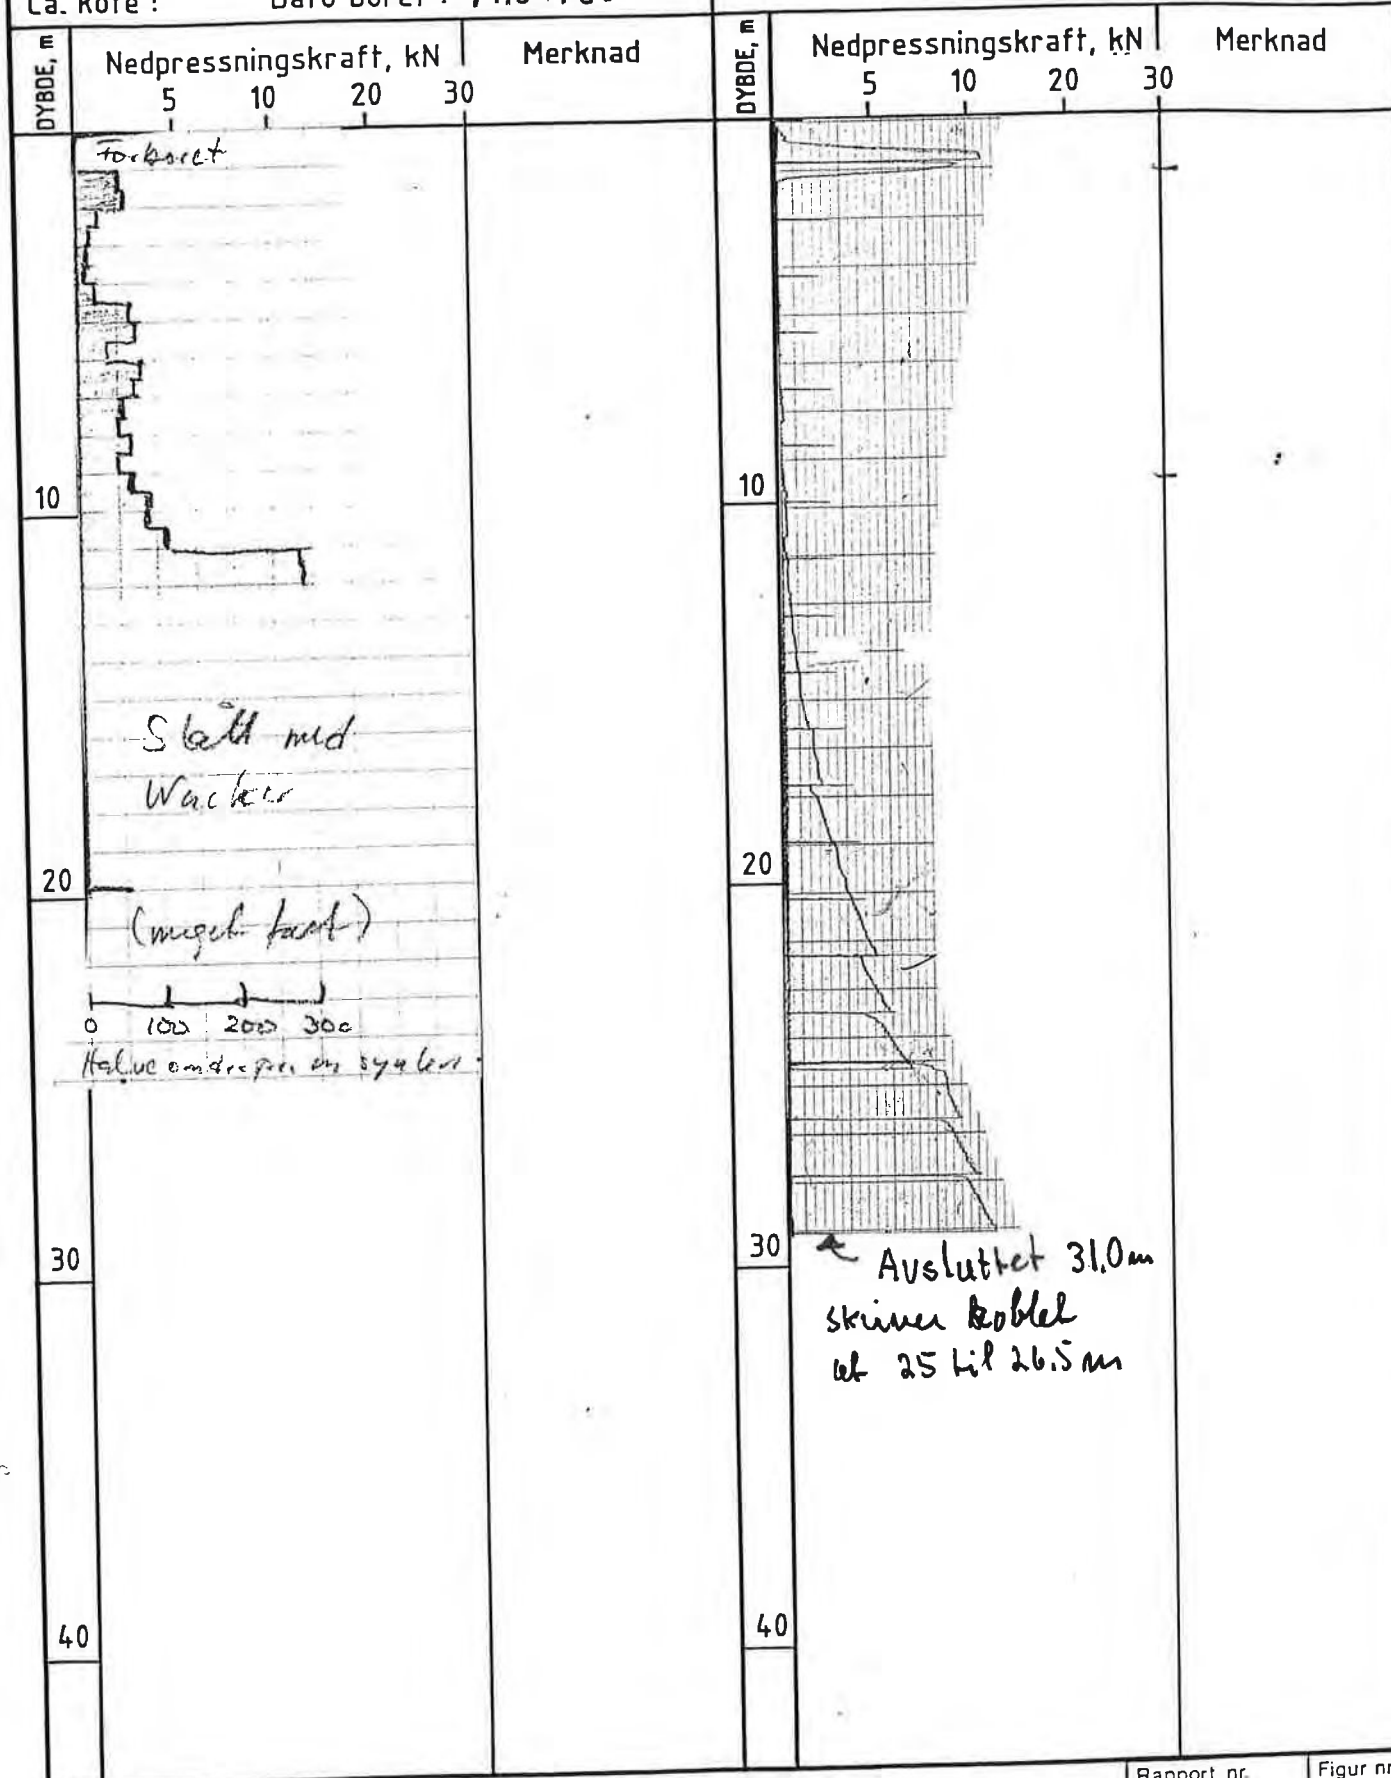 Ca. kote :
Dato boret :
DYBDE, m
Nedpressningskraft, kN
Merknad
5 10 20 30
Forboret
10
Slått med
Wacker
20
(meget fast)
0 100 200 300
Halve omdreininger
30
40
DYBDE, m
Nedpressningskraft, kN
Merknad
5 10 20 30
10
20
30
Avsluttet 31.0 m
skriver koblet
ut 25 til 26.5 m
40
Rapport nr.
Figur nr